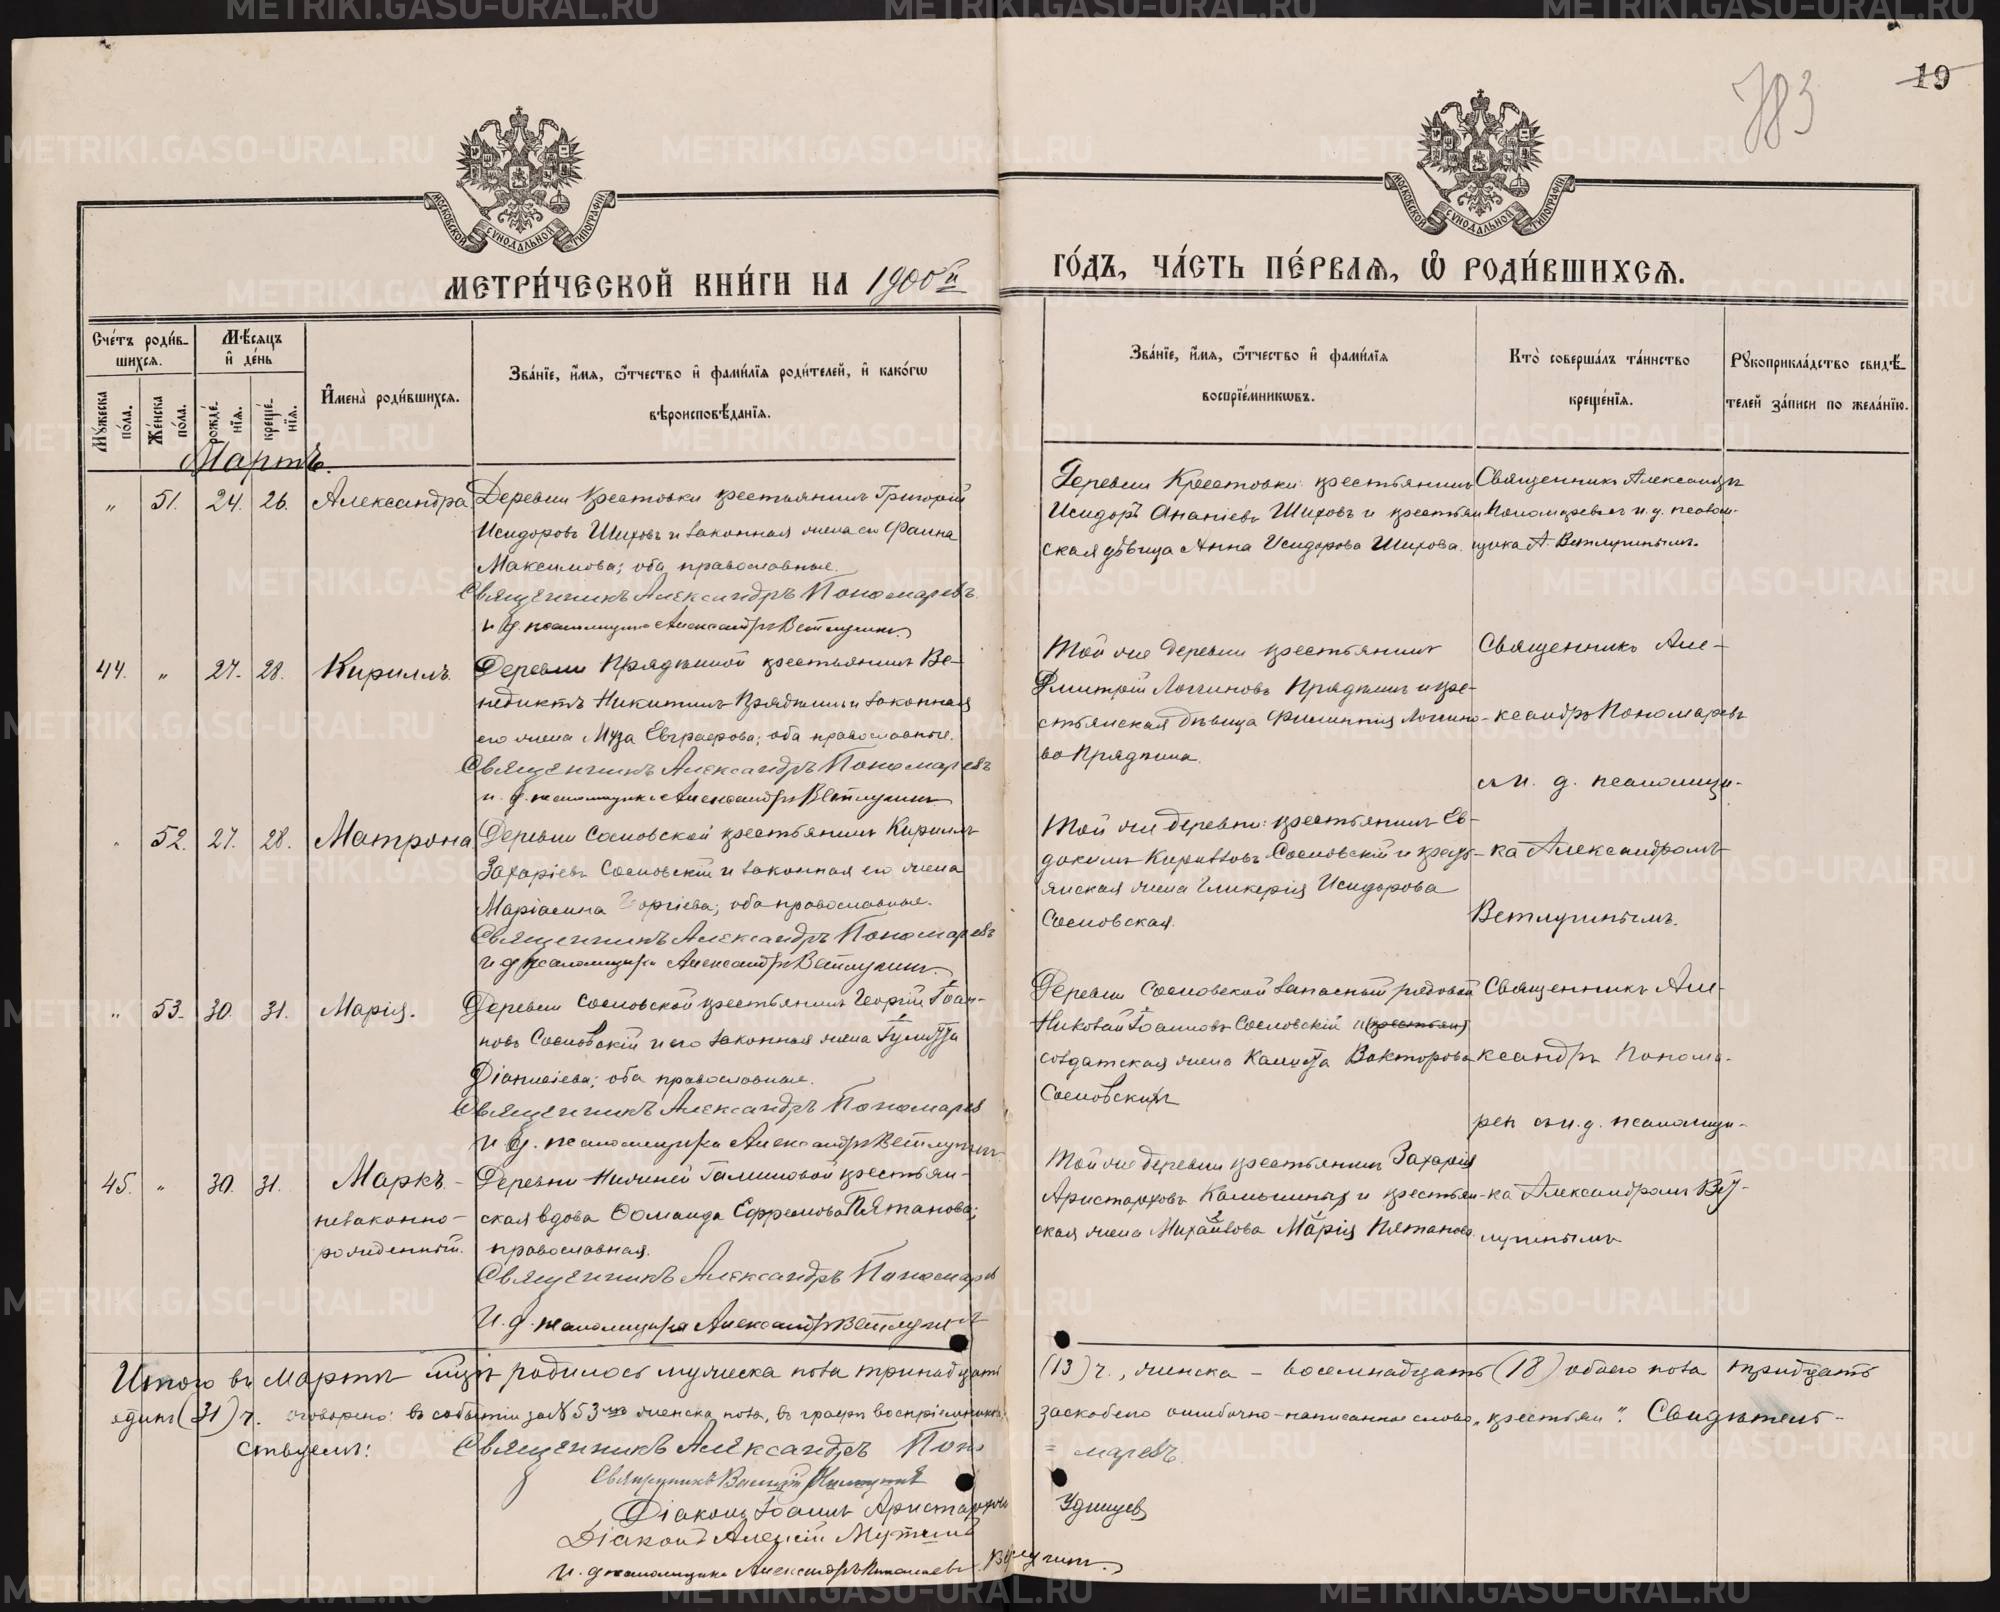 METRIKI.GASO-URAL.RU
783
19
МОСКОВСКОЙ СѴНОДАЛЬНОЙ ТИПОГРАФІИ
МОСКОВСКОЙ СѴНОДАЛЬНОЙ ТИПОГРАФІИ
МЕТРИ́ЧЕСКОЙ КНИ́ГИ НА 1900й
ГО́ДЪ, ЧА́СТЬ ПЕ́РВАѦ, Ѡ҆ РОДИ́ВШИХСѦ.
Сче́тъ роди́в-
шихсѧ.
Мꙋ́жеска по́ла.
Же́нска по́ла.
Мѣ́сѧцъ
и҆ де́нь
рожде́-нїѧ.
креще́-нїѧ.
И҆мена̀ роди́вшихсѧ.
Зва́нїе, и҆́мѧ, ѻ҆́тчество и҆ фами́лїѧ роди́телей, и҆ како́гѡ
вѣроисповѣ́данїѧ.
Зва́нїе, и҆́мѧ, ѻ҆́тчество и҆ фами́лїѧ
воспрїе́мникѡвъ.
Кто̀ соверша́лъ та́инство
креще́нїѧ.
Рꙋкоприкла́дство свидѣ́-
телей за́писи по жела́нїю.
Мартъ.
" 51. 24. 26. Александра
Деревни Крестовки крестьянинъ Григорій
Исидоровъ Шиховъ и законная жена его Фаина
Максимова; оба православные.
Священникъ Александръ Пономаревъ
и. д. псаломщика Александръ Ветлугинъ.
Деревни Крестовки крестьянинъ
Исидоръ Ананіевъ Шиховъ и крестьян
ская дѣвица Анна Исидорова Шихова.
Священникъ Александръ
Пономаревъ и. д. псалом-
щика А. Ветлугинымъ.
44. " 27. 28. Кириллъ.
Деревни Прядкиной крестьянинъ Ве-
недиктъ Никитинъ Прядкинъ и законная
его жена Муза Евграфова; оба православные.
Священникъ Александръ Пономаревъ
и. д. псаломщика Александръ Ветлугинъ
Той же деревни крестьянинъ
Дмитрій Логиновъ Прядкинъ и кре-
стьянская дѣвица Логино-
ва Прядкина.
Священникъ Але-
ксандръ Пономаревъ
съ и. д. псаломщи-
" 52. 27. 28. Матрона
Деревни Сосновской крестьянинъ Кириллъ
Захаріевъ Сосновскій и законная его жена
Маріамна Георгіева; оба православные.
Священникъ Александръ Пономаревъ
и. д. псаломщика Александръ Ветлугинъ.
Той же деревни крестьянинъ Ев-
докимъ Кирилловъ Сосновскій и кресть-
янская жена Гликерія Исидорова
Сосновская.
ка Александромъ
Ветлугинымъ.
" 53. 30. 31. Марія.
Деревни Сосновской крестьянинъ Георгій Іоан-
новъ Сосновскій и его законная жена
Діонисіева; оба православные.
Священникъ Александръ Пономарев
и. д. псаломщика Александръ Ветлугинъ
Деревни Сосновской запасный рядовой
Николай Іоанновъ Сосновскій и (крестьян)
солдатская жена Викторова
Сосновскихъ
Священникъ Але-
ксандръ Понома-
ревъ съ и. д. псаломщи-
45. " 30. 31. Маркъ. -
незаконно-
рожденный.
Деревни Нижней крестьян-
ская вдова Ефремова Пятанова;
православная.
Священникъ Александръ Пономарев
И. д. псаломщика Александръ Ветлугинъ
Той же деревни крестьянинъ Захарія
Аристарховъ и крестьян-
ская жена Михайлова Марія Пятанова.
ка Александромъ Вет-
лугинымъ
Итого въ Мартѣ мцѣ родилось мужеска пола тринадцать (13) ч., женска - восемнадцать (18) обоего пола тридцать
одинъ (31) ч. оговорено: въ событіи за № 53мъ женска пола, въ графѣ воспріемниковъ заскоблено ошибочно-написанное слово „крестьян". Свидѣтель-
ствуемъ: Священникъ Александръ Поно = маревъ.
Священникъ Василій
Діаконъ Іоаннъ Аристархов Удинцев
Діаконъ Алексій
И. д. псаломщика Александръ Николаевъ Ветлугинъ.